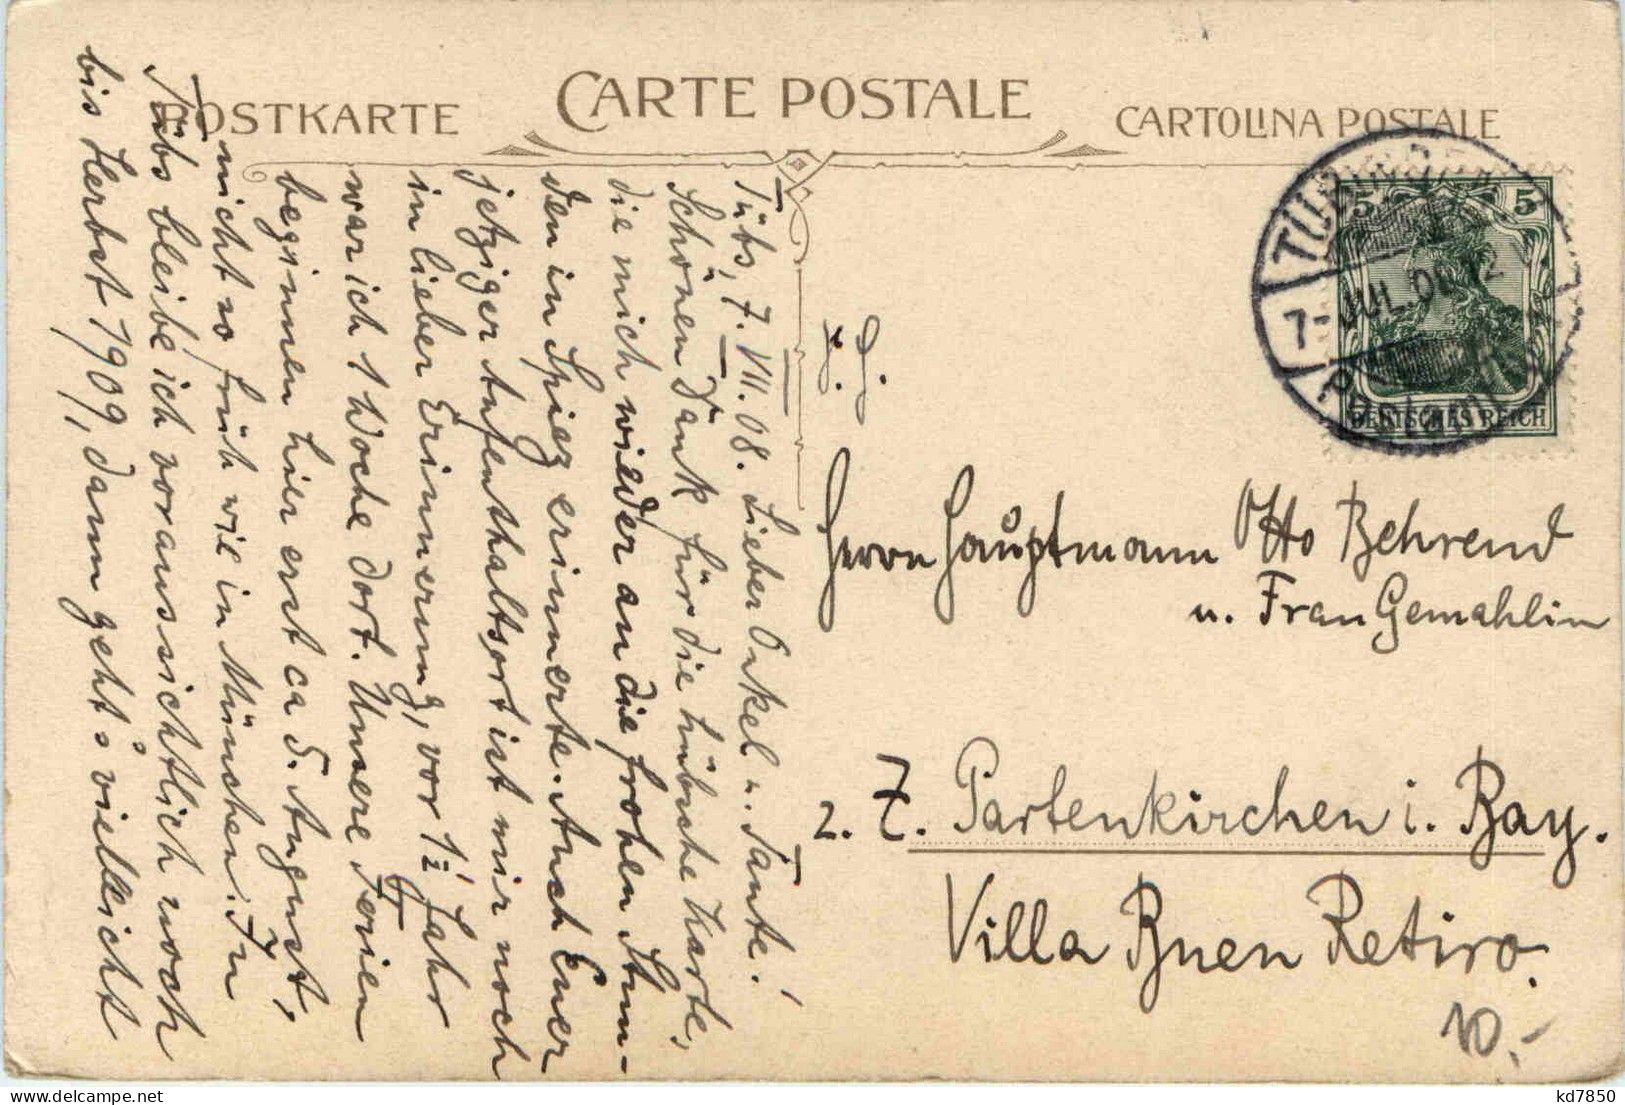 POSTKARTE
CARTE POSTALE
CARTOLINA POSTALE
5 5
DEUTSCHES REICH
Tübs, 7. VII. 08. Lieber Onkel u. Tante!
Schönen Dank für die hübsche Karte,
die mich wieder an die frohen Stun-
den in Spiez erinnerte. Auch Euer
jetziger Aufenthaltsort ist mir noch
in lieber Erinnerung, vor 1½ Jahr
war ich 1 Woche dort. Unsere Ferien
beginnen hier erst ca 5. August,
nicht so früh wie in München. In
Tübs bleibe ich voraussichtlich noch
bis Herbst 1909, dann geht's vielleicht
Herrn Hauptmann Otto Behrend
u. Frau Gemahlin
z. Z. Partenkirchen i. Bay.
Villa Buen Retiro.
10.-
kd7850